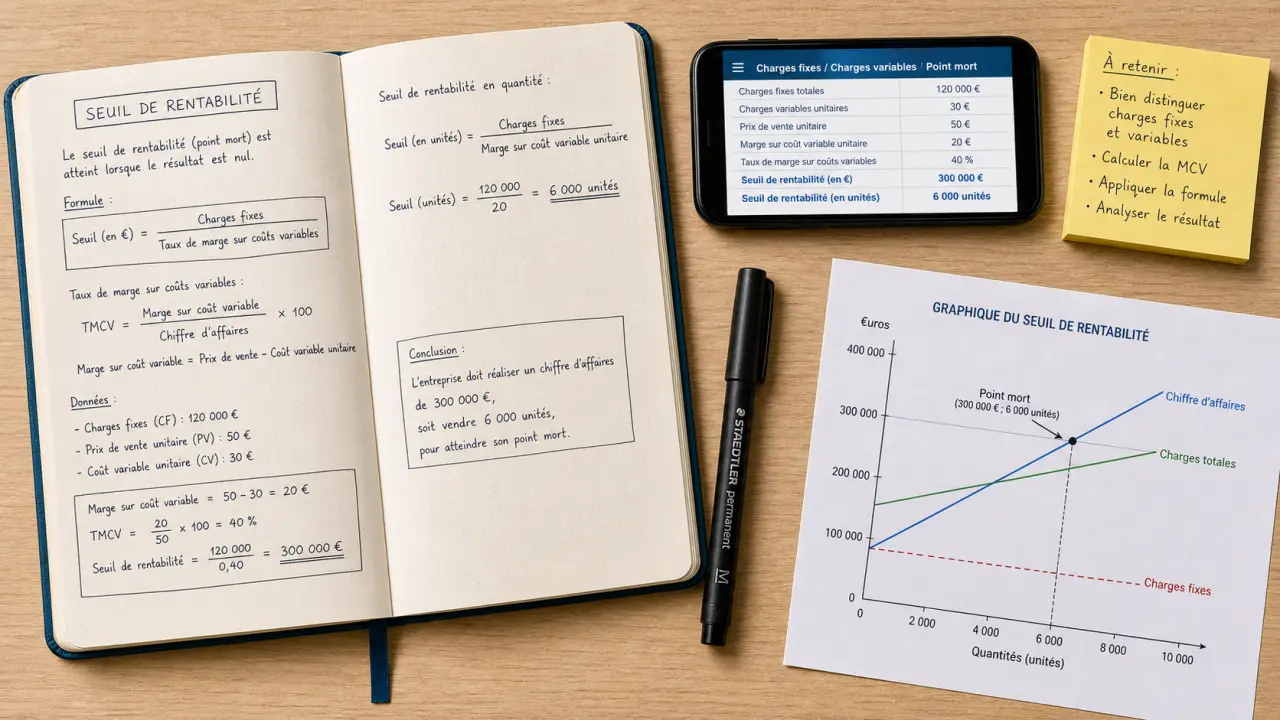 SEUIL DE RENTABILITÉ
Le seuil de rentabilité (point mort) est
atteint lorsque le résultat est nul.
Formule :
Seuil (en €) = Charges fixes / Taux de marge sur coûts variables
Taux de marge sur coûts variables :
TMCV = Marge sur coût variable / Chiffre d'affaires × 100
Marge sur coût variable = Prix de vente – Coût variable unitaire
Données :
- Charges fixes (CF) : 120 000 €
- Prix de vente unitaire (PV) : 50 €
- Coût variable unitaire (CV) : 30 €
Marge sur coût variable = 50 – 30 = 20 €
TMCV = 20 / 50 × 100 = 40 %
Seuil de rentabilité = 120 000 / 0,40 = 300 000 €
Seuil de rentabilité en quantité :
Seuil (en unités) = Charges fixes / Marge sur coût variable unitaire
Seuil (unités) = 120 000 / 20 = 6 000 unités
Conclusion :
L'entreprise doit réaliser un chiffre d'affaires
de 300 000 €,
soit vendre 6 000 unités,
pour atteindre son point mort.
Charges fixes / Charges variables | Point mort
Charges fixes totales 120 000 €
Charges variables unitaires 30 €
Prix de vente unitaire 50 €
Marge sur coût variable unitaire 20 €
Taux de marge sur coûts variables 40 %
Seuil de rentabilité (en €) 300 000 €
Seuil de rentabilité (en unités) 6 000 unités
À retenir :
• Bien distinguer
charges fixes
et variables
• Calculer la MCV
• Appliquer la formule
• Analyser le résultat
STAEDTLER permanent M
GRAPHIQUE DU SEUIL DE RENTABILITÉ
€uros
400 000
300 000
200 000
100 000
0
Point mort
(300 000 € ; 6 000 unités)
Chiffre d'affaires
Charges totales
Charges fixes
0 2 000 4 000 6 000 8 000 10 000
Quantités (unités)